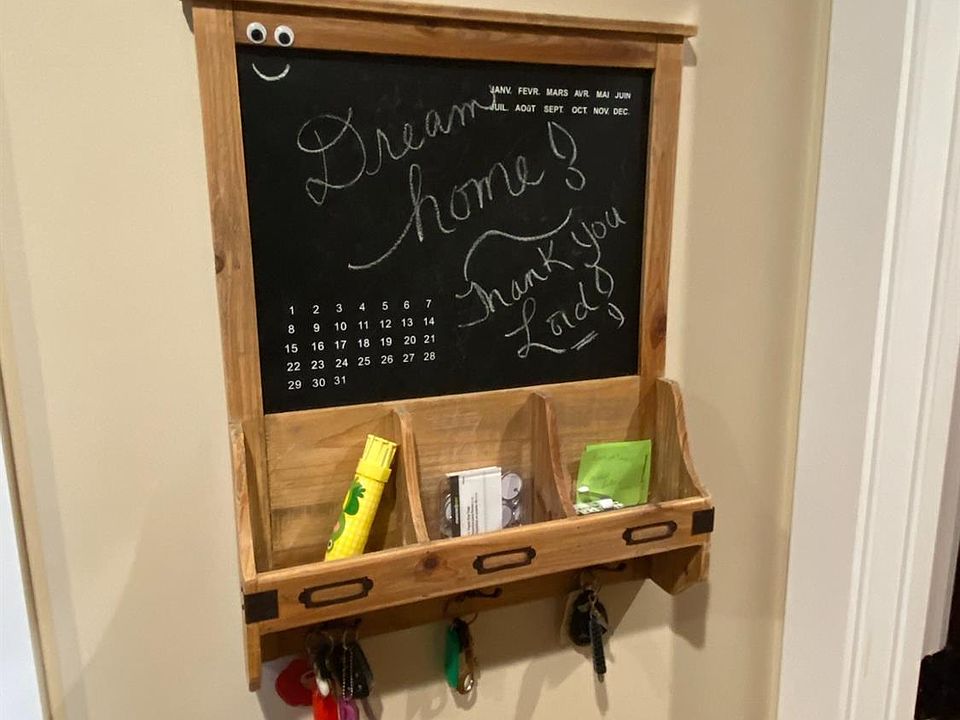 JANV. FEVR. MARS AVR. MAI JUIN
JUIL. AOÛT SEPT. OCT. NOV. DEC.
Dream
home!
Thank you
Lord!
1 2 3 4 5 6 7
8 9 10 11 12 13 14
15 16 17 18 19 20 21
22 23 24 25 26 27 28
29 30 31